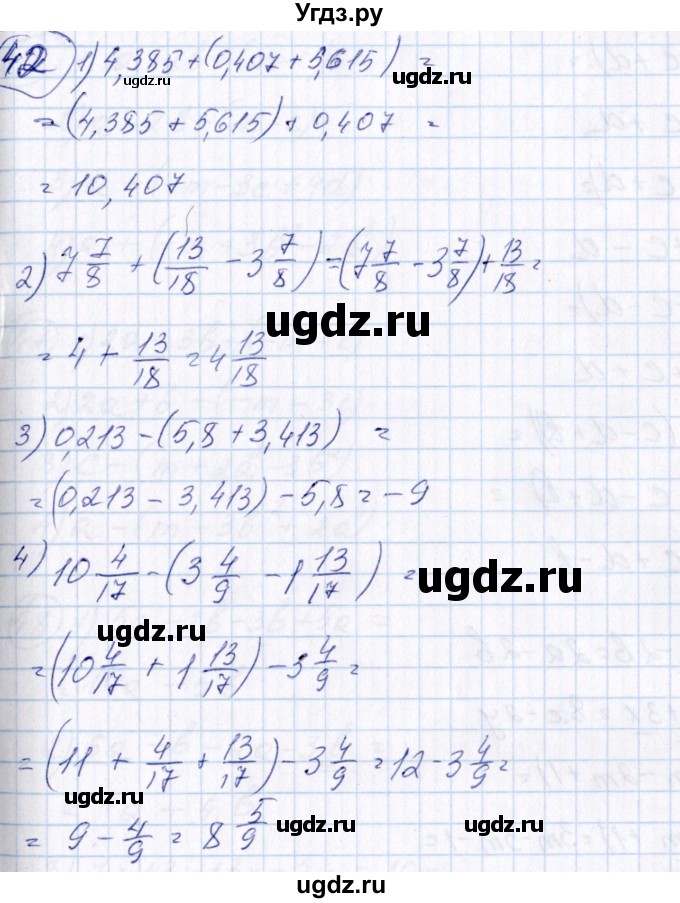 Угдз.ру
42 1) 4,385 + (0,407 + 5,615) =
ugdz.ru ugdz.ru
= (4,385 + 5,615) + 0,407 =
= 10,407
2) 7 7/8 + (13/18 - 3 7/8) = (7 7/8 - 3 7/8) + 13/18 =
ugdz.ru
= 4 + 13/18 = 4 13/18
3) 0,213 - (5,8 + 3,413) =
= (0,213 - 3,413) - 5,8 = -9
4) 10 4/17 - (3 4/9 - 1 13/17) =
ugdz.ru
ugdz.ru
= (10 4/17 + 1 13/17) - 3 4/9 =
= (11 + 4/17 + 13/17) - 3 4/9 = 12 - 3 4/9 =
= 9 - 4/9 = 8 5/9
ugdz.ru ugdz.ru
ugdz.ru